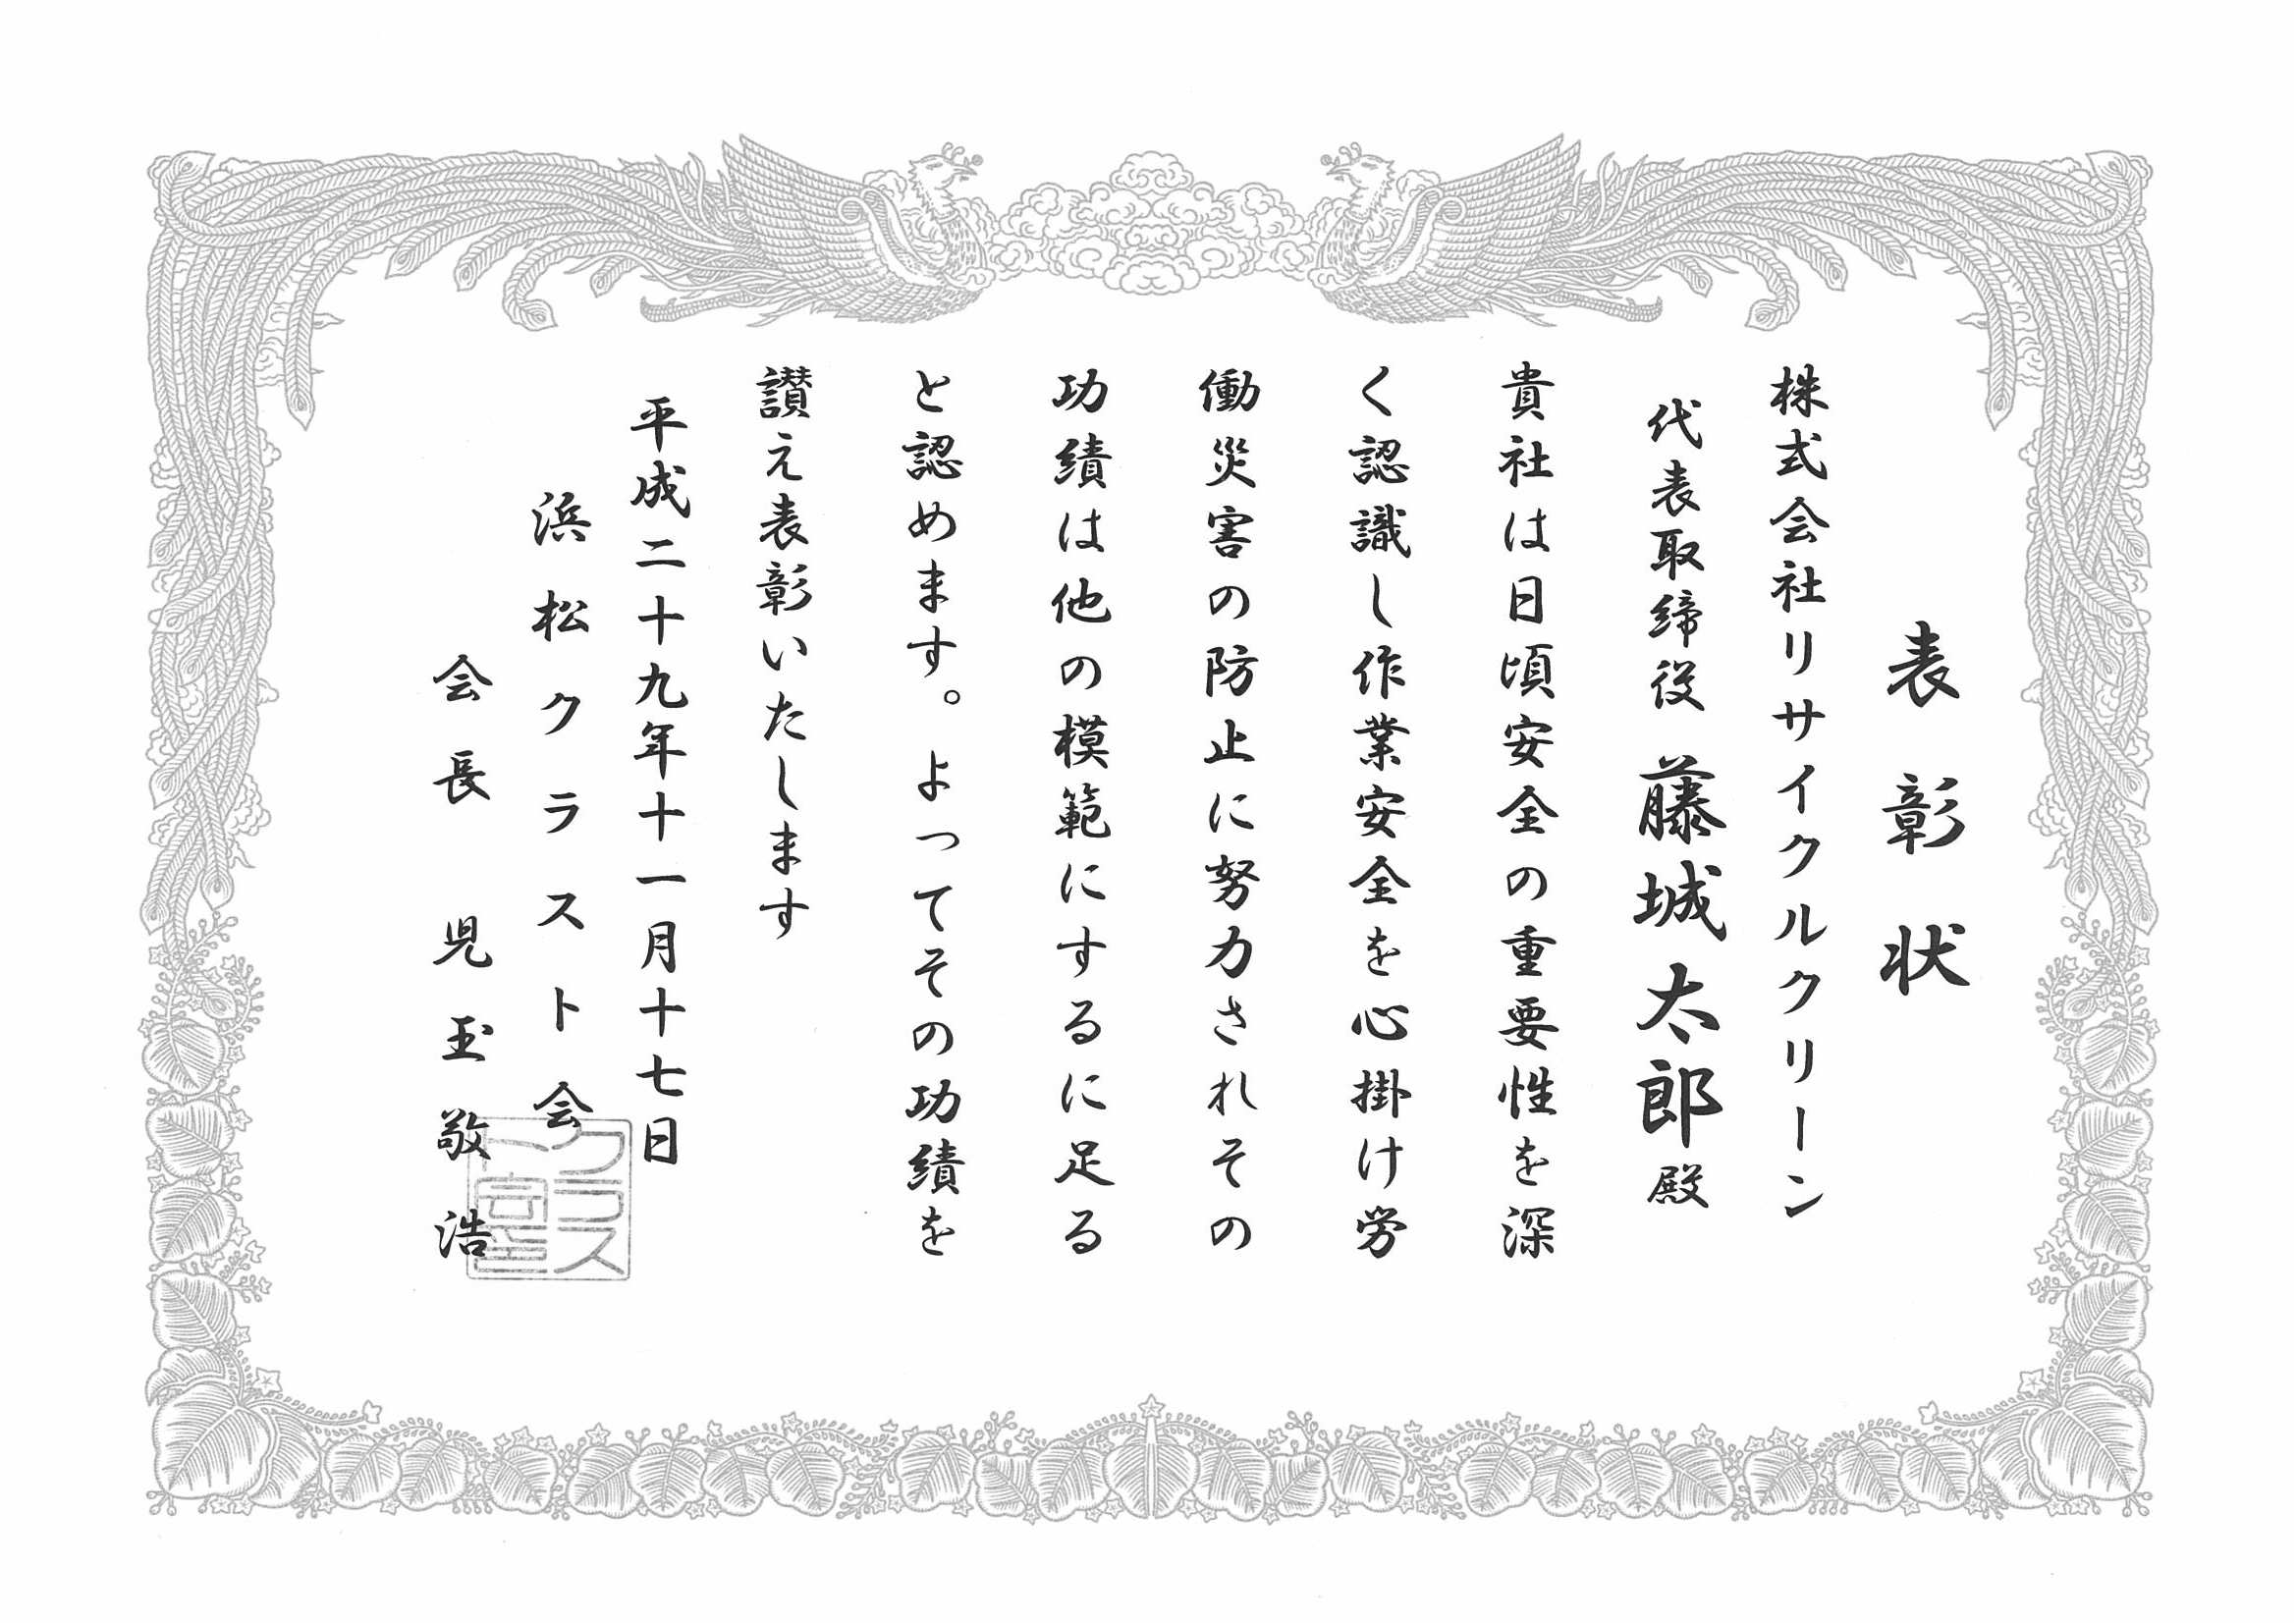 表彰状
株式会社リサイクルクリーン
代表取締役 藤城太郎殿
貴社は日頃安全の重要性を深
く認識し作業安全を心掛け労
働災害の防止に努力されその
功績は他の模範にするに足る
と認めます。よってその功績を
讃え表彰いたします
平成二十九年十一月十七日
浜松クラスト会
会長 児玉敬浩
クラス
ト会印